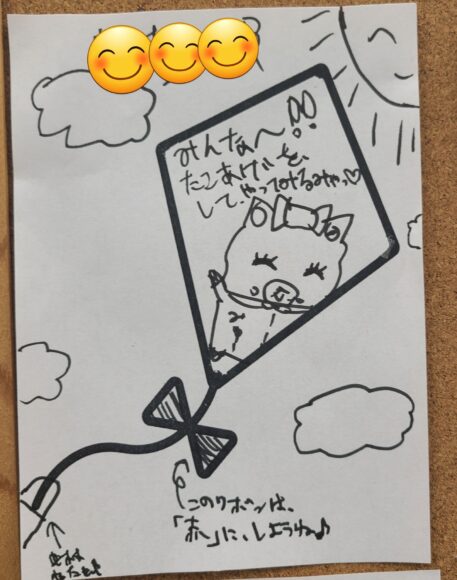 みんなへ!!
たこあげを、
して、やってみるみゃっ♡
このリボンは、
「赤」に、しようね♪